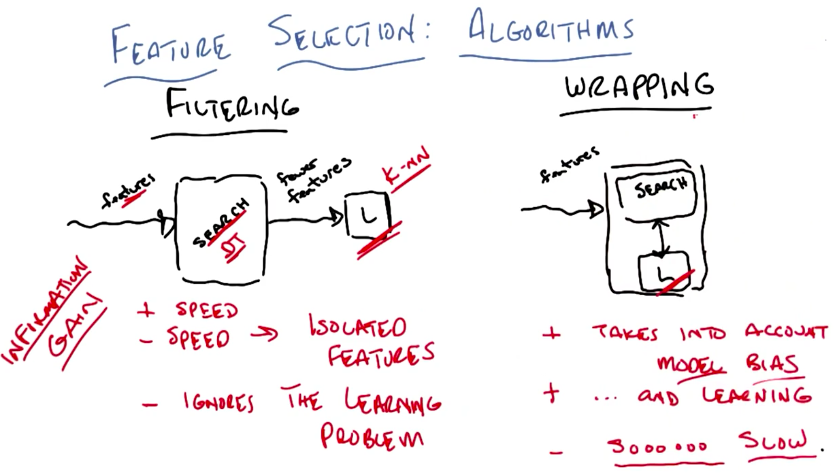 FEATURE SELECTION: ALGORITHMS
FILTERING
features
SEARCH
DT
fewer
features
L
K-NN
INFIRMATION
GAIN
+ SPEED
- SPEED → ISOLATED
FEATURES
- IGNORES THE LEARNING
PROBLEM
WRAPPING
features
SEARCH
L
+ TAKES INTO ACCOUNT
MODEL BIAS
+ ... AND LEARNING
- SOOOOOOO SLOW.